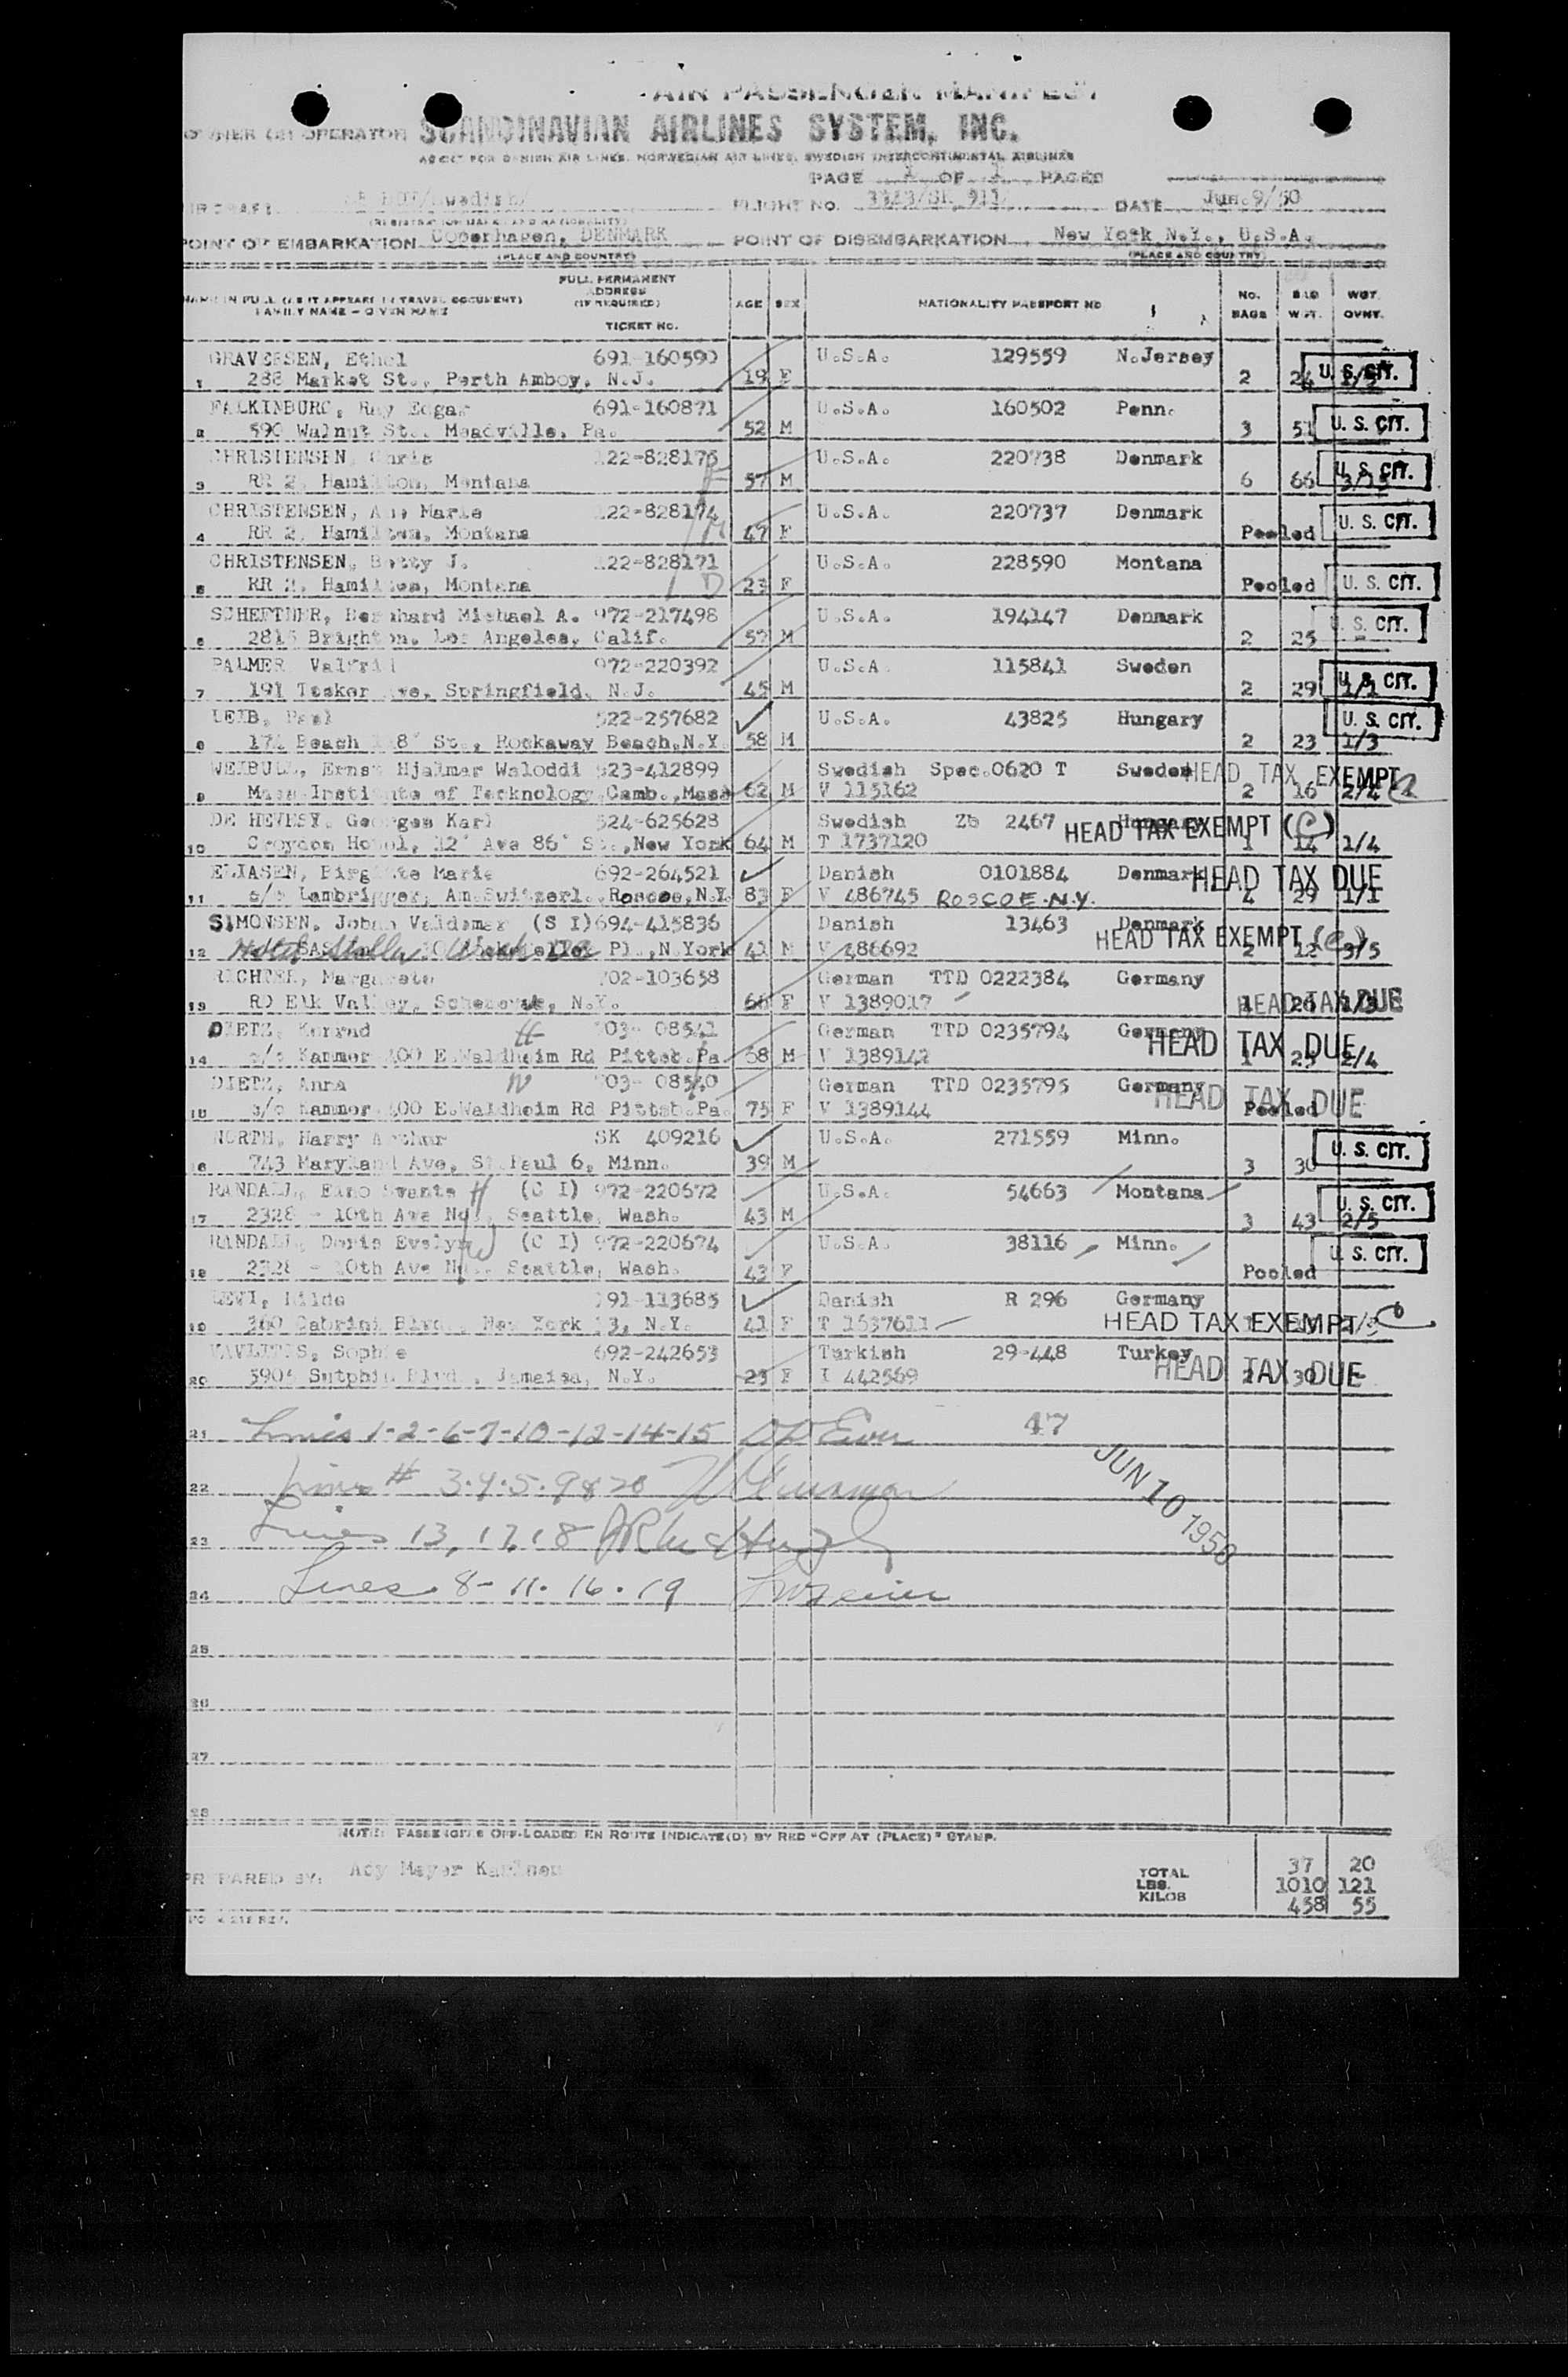 AIR PASSENGER MANIFEST
OWNER OR OPERATOR SCANDINAVIAN AIRLINES SYSTEM, INC.
AGENT FOR DANISH AIR LINES, NORWEGIAN AIR LINES, SWEDISH INTERCONTINENTAL AIRLINES
PAGE 1 OF 1 PAGES
AIRCRAFT /Swedish/ FLIGHT NO. DATE Jun.9/50
(REGISTRATION MARKS AND NATIONALITY)
POINT OF EMBARKATION Copenhagen, DENMARK POINT OF DISEMBARKATION New York N.Y., U.S.A.
(PLACE AND COUNTRY) (PLACE AND COUNTRY)
NAME IN FULL (AS IT APPEARS IN TRAVEL DOCUMENT) FAMILY NAME - GIVEN NAMES FULL PERMANENT ADDRESS (IF REQUIRED) TICKET NO. AGE SEX NATIONALITY PASSPORT NO No. BAGS BAG WGT. WGT. OVNT.
GRAVERSEN, Ethel 691-160590 U.S.A. 129559 N.Jersey U. S. CIT.
1 288 Market St., Perth Amboy, N.J. 19 F 2 24
FALKINBURG, Ray Edgar 691-160871 U.S.A. 160502 Penn. U. S. CIT.
2 590 Walnut St., Meadville, Pa. 52 M 3 51
CHRISTENSEN, Chris 122-828175 U.S.A. 220738 Denmark U. S. CIT.
3 RR 2, Hamilton, Montana 57 M 6 66
CHRISTENSEN, Marie 122-828174 U.S.A. 220737 Denmark U. S. CIT.
4 RR 2, Hamilton, Montana 47 F Pooled
CHRISTENSEN, Betty J. 122-828171 U.S.A. 228590 Montana U. S. CIT.
5 RR 2, Hamilton, Montana 23 F Pooled
Bernhard Michael A. 972-217498 U.S.A. 194147 Denmark U. S. CIT.
6 2815 Brighton, Los Angeles, Calif. M 2 25
PALMER Valfrid 972-220392 U.S.A. 115841 Sweden U. S. CIT.
7 191 Tooker Ave, Springfield, N.J. 45 M 2 29 1/1
LEIB, Paul 522-257682 U.S.A. 43825 Hungary U. S. CIT.
8 Beach St., Rockaway Beach, N.Y. 58 M 2 23 1/3
WEIBULL, Ernst Hjalmar Waloddi 523-412899 Swedish Spec.0620 T Sweden HEAD TAX EXEMPT
9 Mass Institute of Tecknology, Camb., Mass 62 M V 115162 2 16 2/4
DE HEVESY, Georges Karl 524-625628 Swedish Zb 2467 Hungary HEAD TAX EXEMPT (C)
10 Croydon Hotel, 12' Ave 86' St., New York 64 M T 1737120 1 14 1/4
ELIASEN, Birgitte Marie 692-264521 Danish 0101884 Denmark HEAD TAX DUE
11 c/o Lambrigger, Am.Switzerl. Roscoe, N.Y. 83 F V 486745 ROSCOE N.Y. 4 29 1/1
SIMONSEN, Johan Valdemar (S I) 694-415836 Danish 13463 Denmark HEAD TAX EXEMPT (C)
12 Pl., N.York 41 M V 486692 2 12 3/5
RICHTER, Margarete 702-103658 German TTD 0222384 Germany
13 RD Elk Valley, N.Y. F V 1389017 HEAD TAX DUE
DIETZ, Konrad H 703- 08541 German TTD 0235794 Germany HEAD TAX DUE
14 c/o Kammer 400 E.Waldheim Rd Pittsb.Pa 68 M V 1389142 1 2/4
DIETZ, Anna W 703- 08540 German TTD 0235795 Germany HEAD TAX DUE
15 c/o Kammer 400 E.Waldheim Rd Pittsb.Pa. 75 F V 1389144 Pooled
NORTH, Harry Arthur SK 409216 U.S.A. 271559 Minn. U. S. CIT.
16 743 Maryland Ave, St.Paul 6, Minn. 39 M 3 30
RANDALL, Eino Swante H (C I) 972-220672 U.S.A. 54663 Montana U. S. CIT.
17 2328 - 10th Ave No., Seattle, Wash. 43 M 3 43 2/5
RANDALL, Doris Evelyn W (C I) 972-220674 U.S.A. 38116 Minn. U. S. CIT.
18 2328 - 10th Ave No., Seattle, Wash. 43 F Pooled
LEVI, Hilde 191-113685 Danish R 296 Germany
19 360 Cabrini Blvd., New York 33, N.Y. 41 F T 1637611 HEAD TAX EXEMPT
Sophie 692-242653 Turkish 29-448 Turkey HEAD TAX DUE
20 Sutphin Blvd., Jamaica, N.Y. 23 F I 442569 2 30
21 Lines 1-2-6-7-10-12-14-15 47
22 Lines # 3.4.5.9&20
JUN 10 1950
23 Lines 13, 17, 18
24 Lines 8-11.16.19
25
26
27
28
NOTE: PASSENGERS OFF-LOADED EN ROUTE INDICATE(D) BY RED "OFF AT (PLACE)" STAMP.
PREPARED BY: Acy Meyer
TOTAL 37 20
LBS. 1010 121
KILOS 458 55